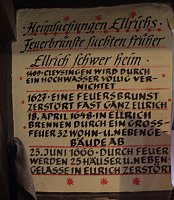 Heimsuchungen Ellrichs
Feuerbrünste suchten früher
Ellrich schwer heim
CLEYSINGEN WIRD DURCH
EIN HOCHWASSER VÖLLIG VER-
NICHTET
1627 · EINE FEUERSBRUNST
ZERSTÖRT FAST GANZ ELLRICH
18. APRIL 1648 · IN ELLRICH
BRENNEN DURCH EIN GROSS-
FEUER 32 WOHN- U. NEBENGE-
BÄUDE AB
23. JUNI 1666 · DURCH FEUER
WERDEN 25 HÄUSER U. NEBEN
GELASSE IN ELLRICH ZERSTÖRT